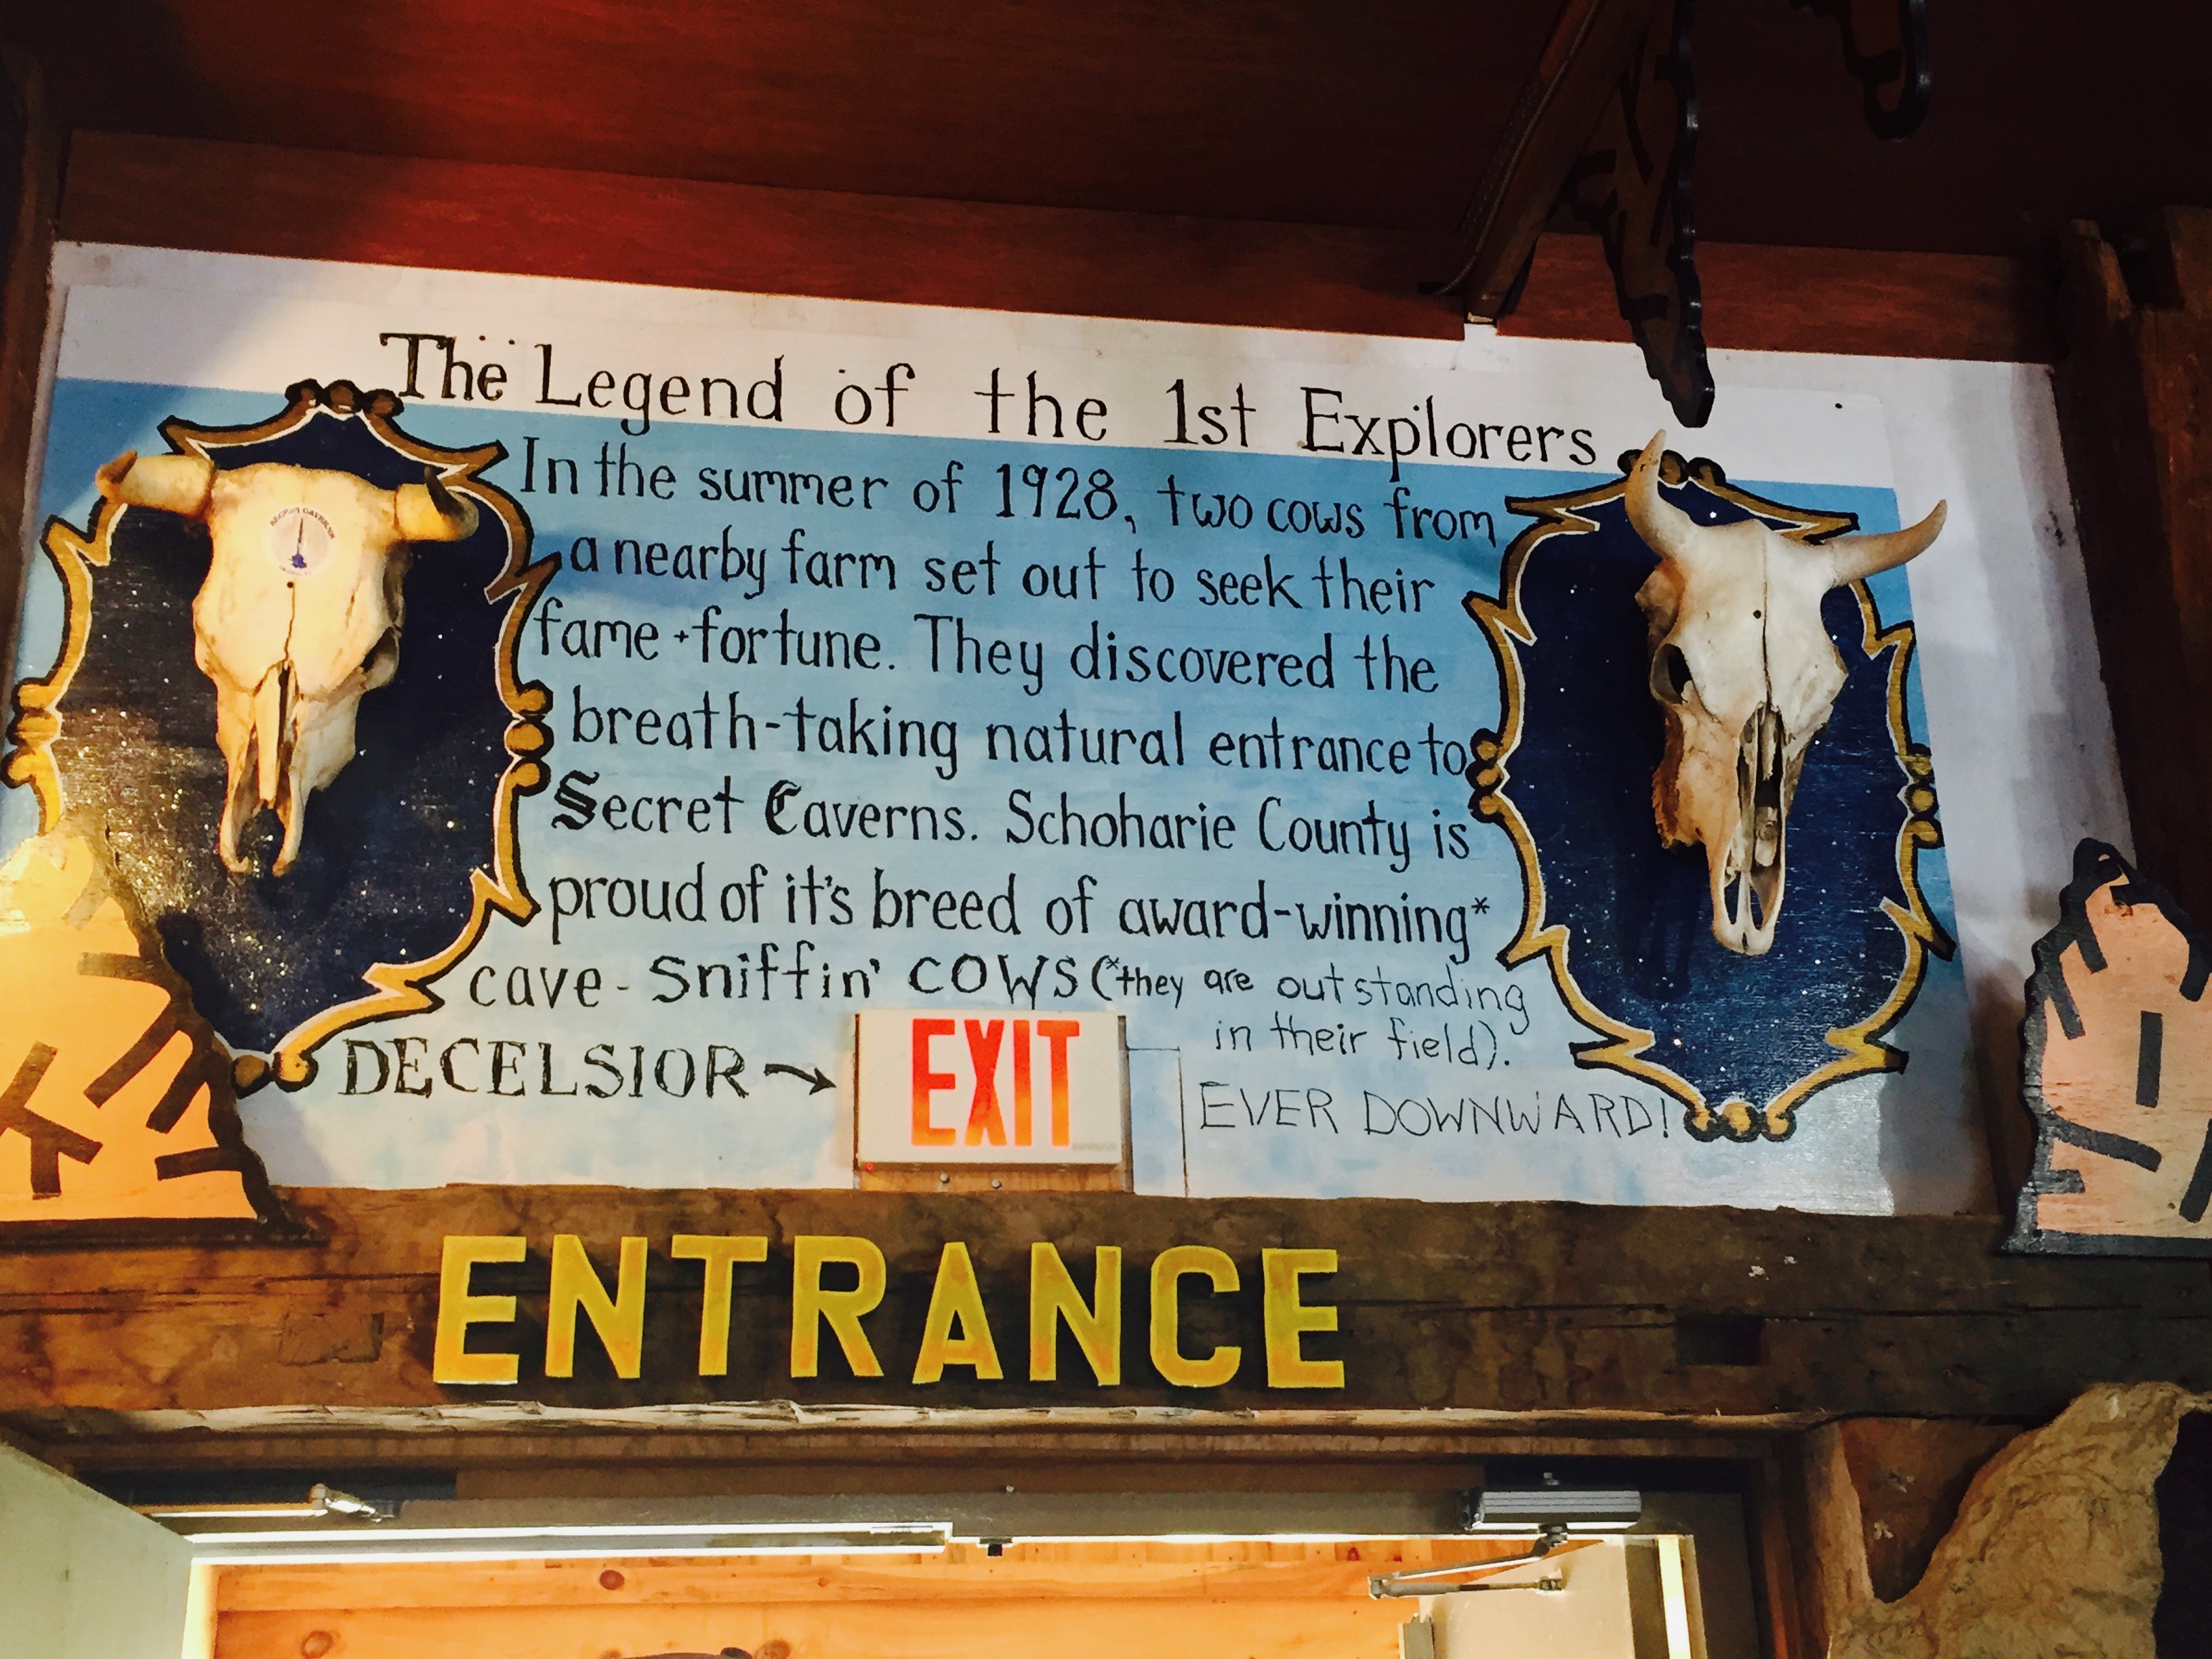 The Legend of the 1st Explorers
In the summer of 1928, two cows from
a nearby farm set out to seek their
fame + fortune. They discovered the
breath-taking natural entrance to
Secret Caverns. Schoharie County is
proud of it's breed of award-winning*
cave-sniffin' COWS (*they are outstanding
in their field).
DECELSIOR → EXIT
EVER DOWNWARD!
ENTRANCE
SECRET CAVERNS